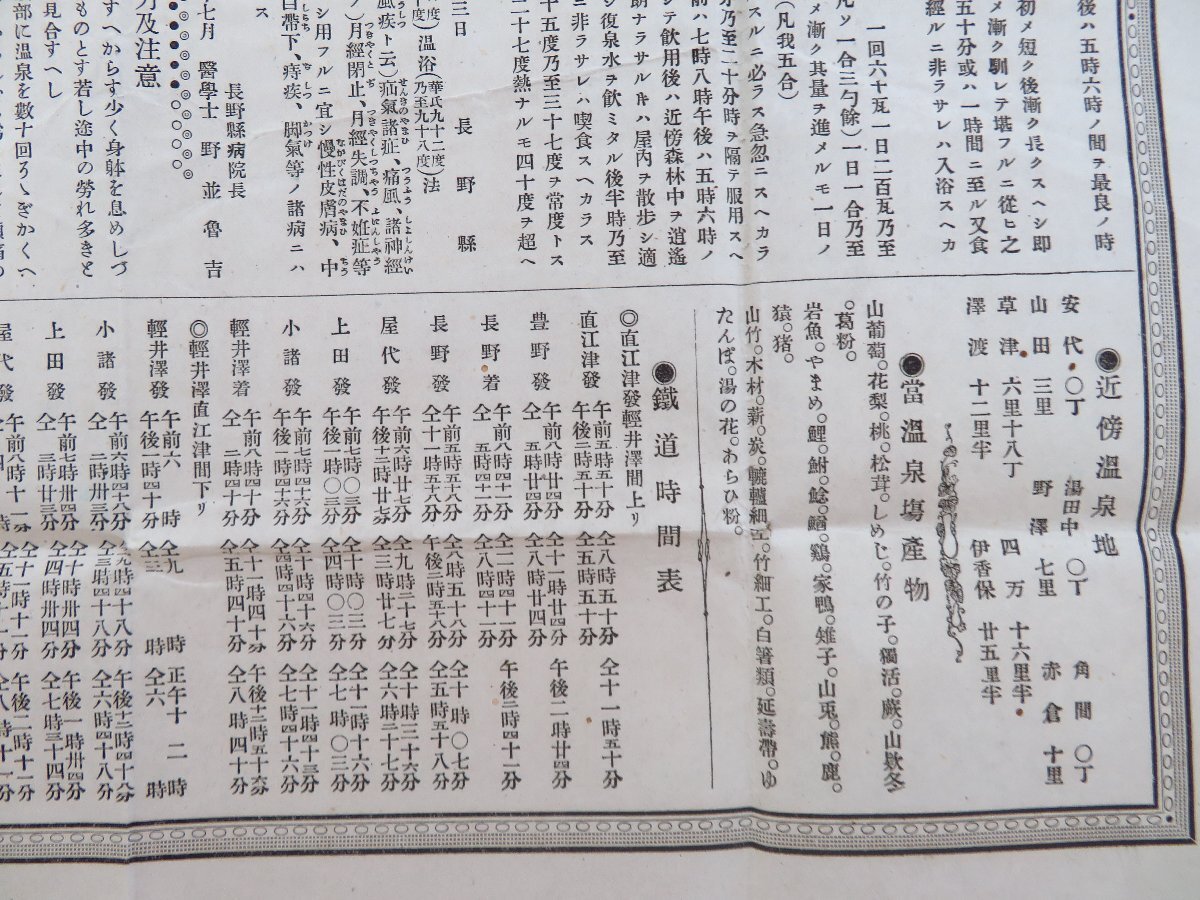 後ハ五時六時ノ間ヲ最良ノ時
初メ短ク後漸ク長クスヘシ即
メ漸ク馴レテ堪フルニ從ヒ之
五十分或ハ一時間ニ至ル又食
經ルニ非ラサレハ入浴スヘカ
一回六十瓦一日二百瓦乃至
凡ソ一合三勺餘)一日一合乃至
メ漸ク其量ヲ進メルモ一日ノ
(凡我五合)
スルニ必ラス急忽ニスヘカラ
分乃至二十分時ヲ隔テ服用スヘ
前ハ七時八時午後ハ五時六時ノ
シテ飲用後ハ近傍森林中ヲ逍遙
朗ナラサルキハ屋内ヲ散歩シ適
シ復泉水ヲ飲ミタル後半時乃至
ニ非ラサレハ喫食スヘカラス
十五度乃至三十七度ヲ常度トス
二十七度熱ナルモ四十度ヲ超ヘ
三日 長野縣
度)温浴(華氏九十二度乃至九十八度)法
風疾ト云)疝氣諸症、痛風、諸神經
)月經閉止、月經失調、不姙症等
シ用フルニ宜シ慢性皮膚病、中
白帶下、痔疾、脚氣等ノ諸病ニハ
ス
長野縣病院長
七月 醫學士 野並魯吉
方及注意
すへからす少く身躰を息めしづ
ものとす若し途中の勞れ多きと
見合すへし
部に温泉を數十回ろゝぎかくへ
●近傍溫泉地
安代 〇丁 湯田中 〇丁 角間 〇丁
山田 三里 野澤 七里 赤倉 十里
草津 六里十八丁 四万 十六里半
澤渡 十二里半 伊香保 廿五里半
●當溫泉塲產物
山葡萄。花梨。桃。松茸。しめじ。竹の子。獨活。蕨。山欵冬
。葛粉。
岩魚。やまめ。鯉。鮒。鯰。鰌。鶏。家鴨。雉子。山兎。熊。鹿。
猿。猪。
山竹。木材。薪。炭。轆轤細工。竹細工。白箸類。延壽帶。ゆ
たんぽ。湯の花。わらひ粉。
●鐵道時間表
◎直江津發輕井澤間上リ
直江津發 午前五時五十分 仝八時五十分 仝十一時五十分
午後二時五十分 仝五時五十分
豊野發 仝八時廿四分 仝十一時廿四分 午後二時廿四分
仝五時廿四分 仝八時廿四
長野着 午前八時四十一分 仝十一時四十一分 午後二時四十一分
仝五時四十一分 仝八時四十一
長野發 午前五時五十分 仝八時五十八分 仝十一時〇七分
仝十一時五十八分 午後二時五十八分 仝五時五十八分
屋代發 午前六時廿七分 仝九時二十七分 仝十一時三十六分
午後十二時廿七分 仝三時廿七分 仝六時二十七分
上田發 午前七時〇三分 仝十時〇三分 仝十一時十六分
午後一時〇三分 仝四時〇三分 仝七時〇三分
小諸發 午前七時四十六分 仝十時四十六分 仝十一時四十三分
仝一時四十六分 仝四時四十六分 仝七時四十六分
輕井澤着 午前八時四十分 仝十一時四十分 午後十二時五十六分
仝二時四十分 仝五時四十分 仝八時四十分
◎輕井澤直江津間下リ
輕井澤發 午前六時 仝九時 正午十二時
午後一時四十分 仝三時 仝六時
小諸發 午前六時四十八分 仝九時四十八分 午後十二時四十八分
仝二時卅三分 仝三時四十八分 仝六時四十八分
上田發 午前七時卅四分 仝十時卅四分 午後一時卅四分
仝三時廿分 仝四時卅四分 仝七時三十四分
屋代發 午前八時十一分 仝十一時十一分 午後二時十一分